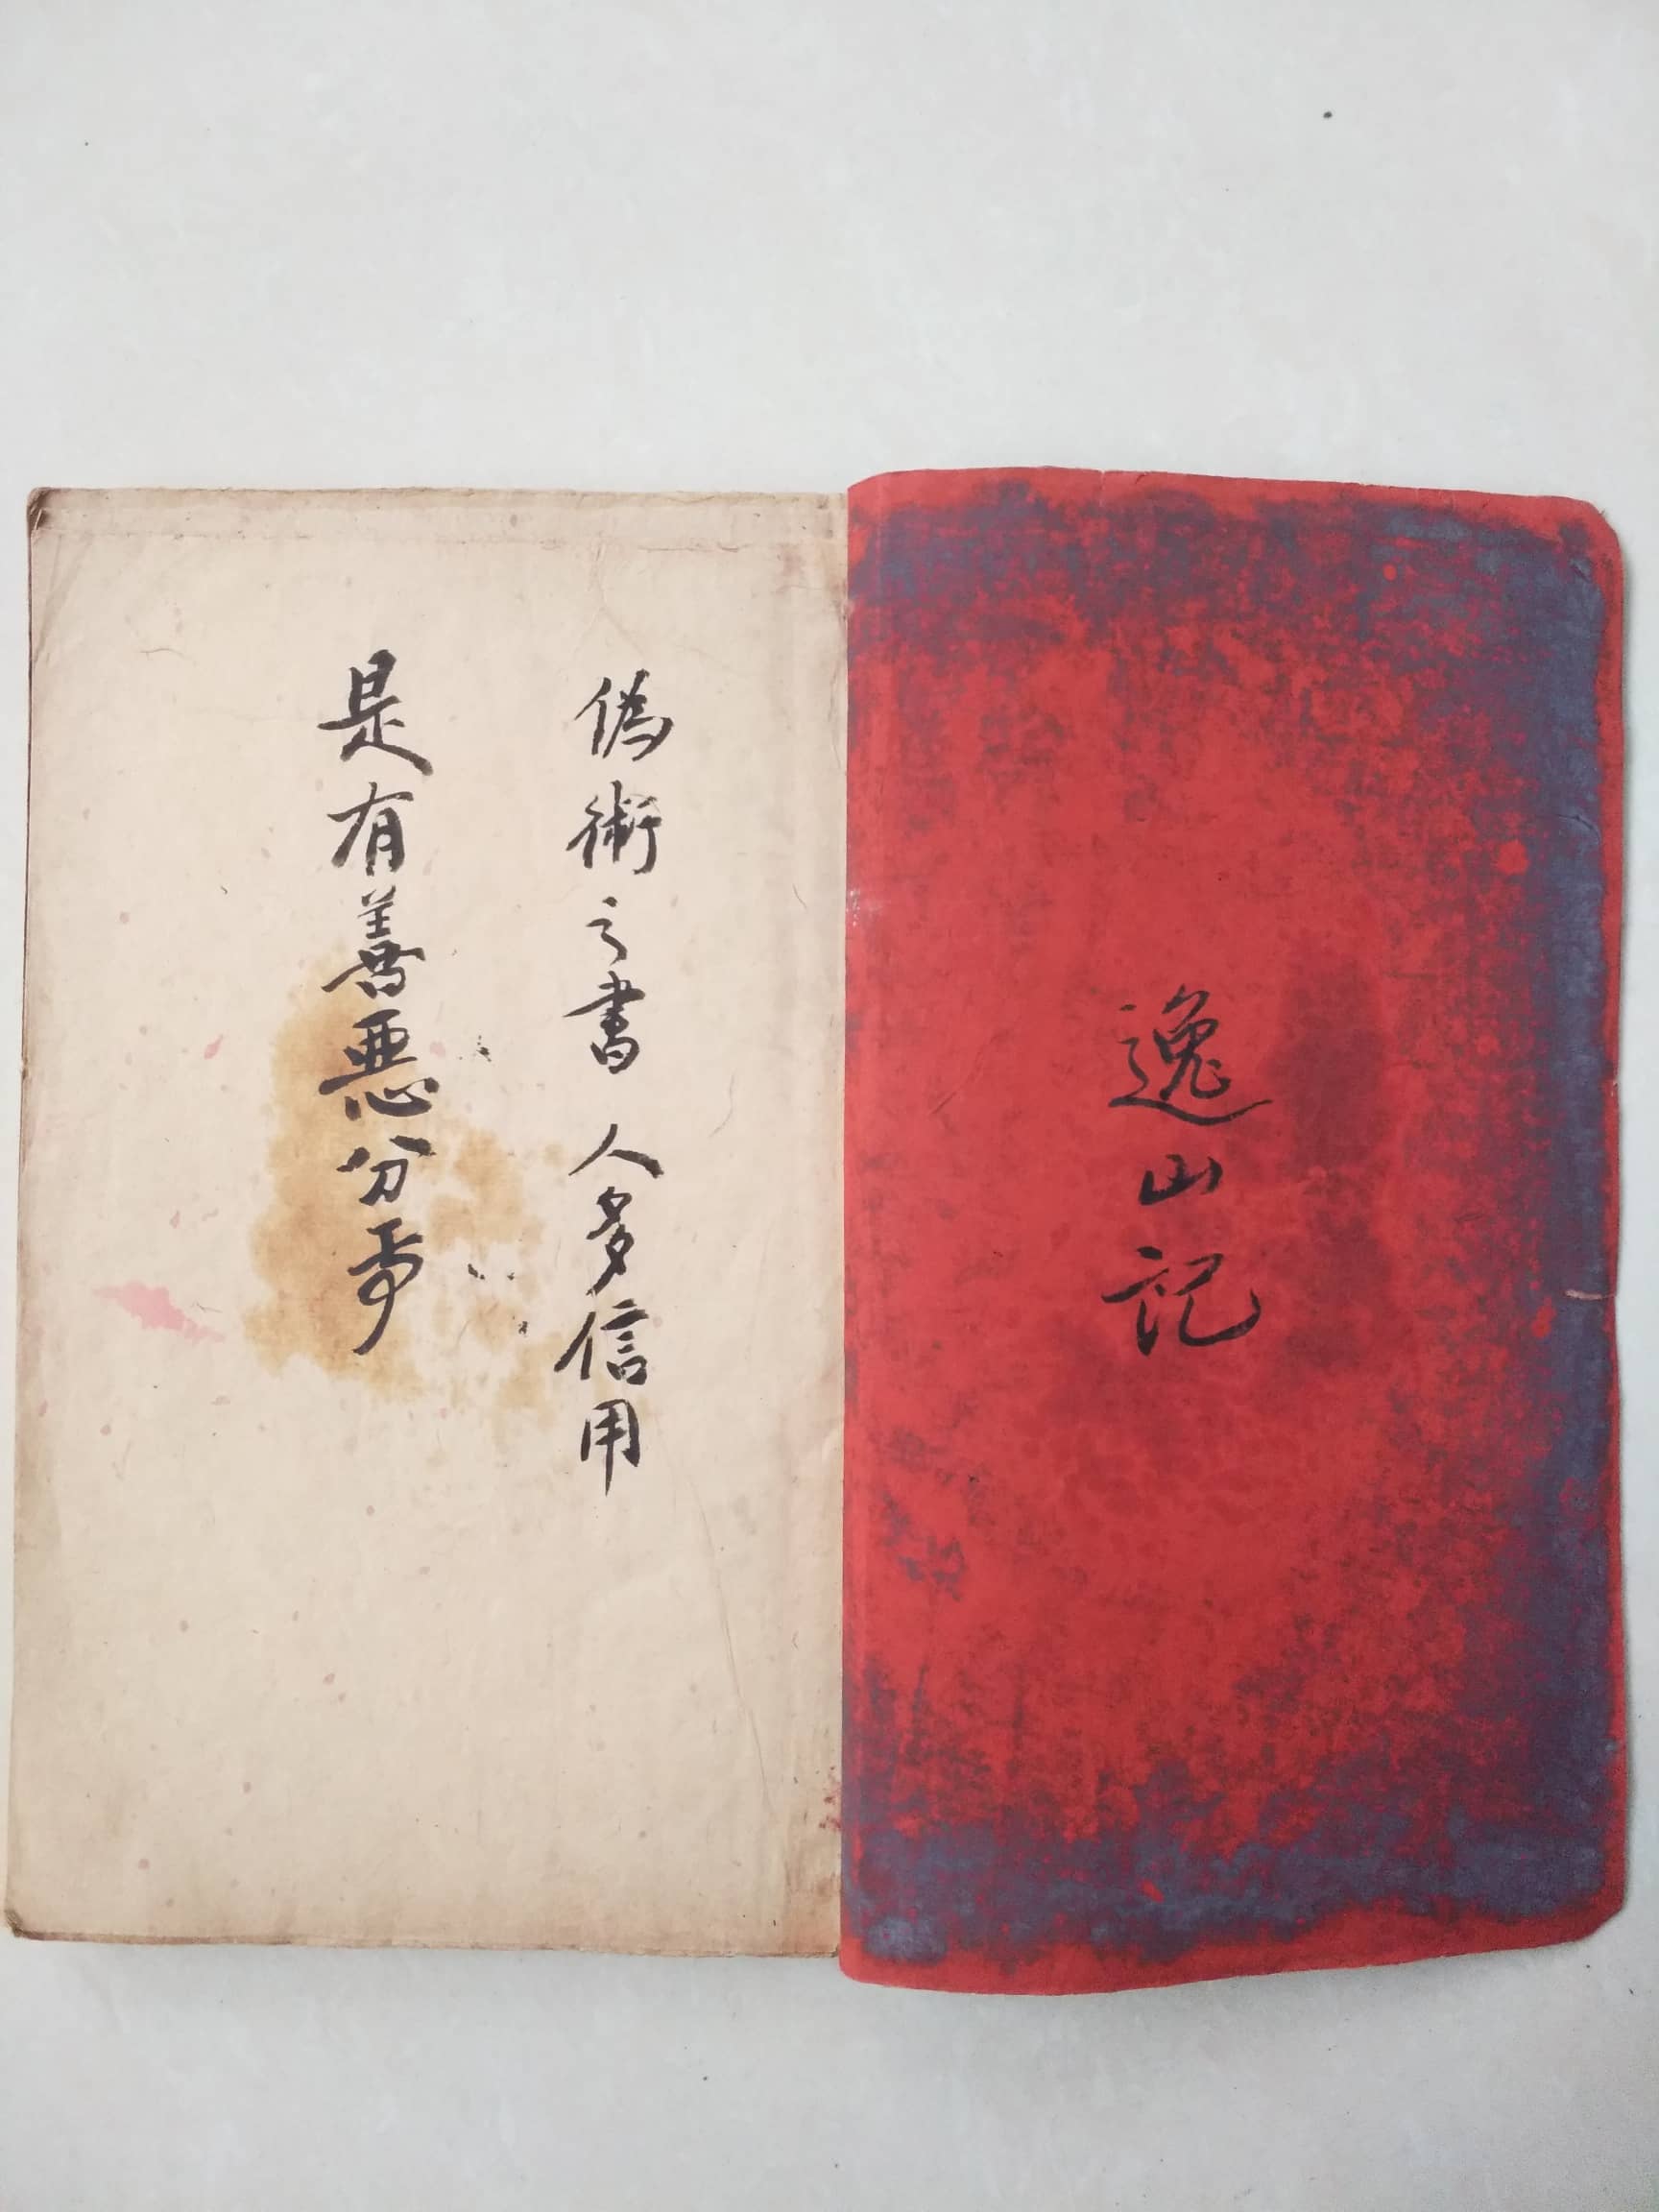 逸山記
偽術之書人多信用
是有善惡分乎